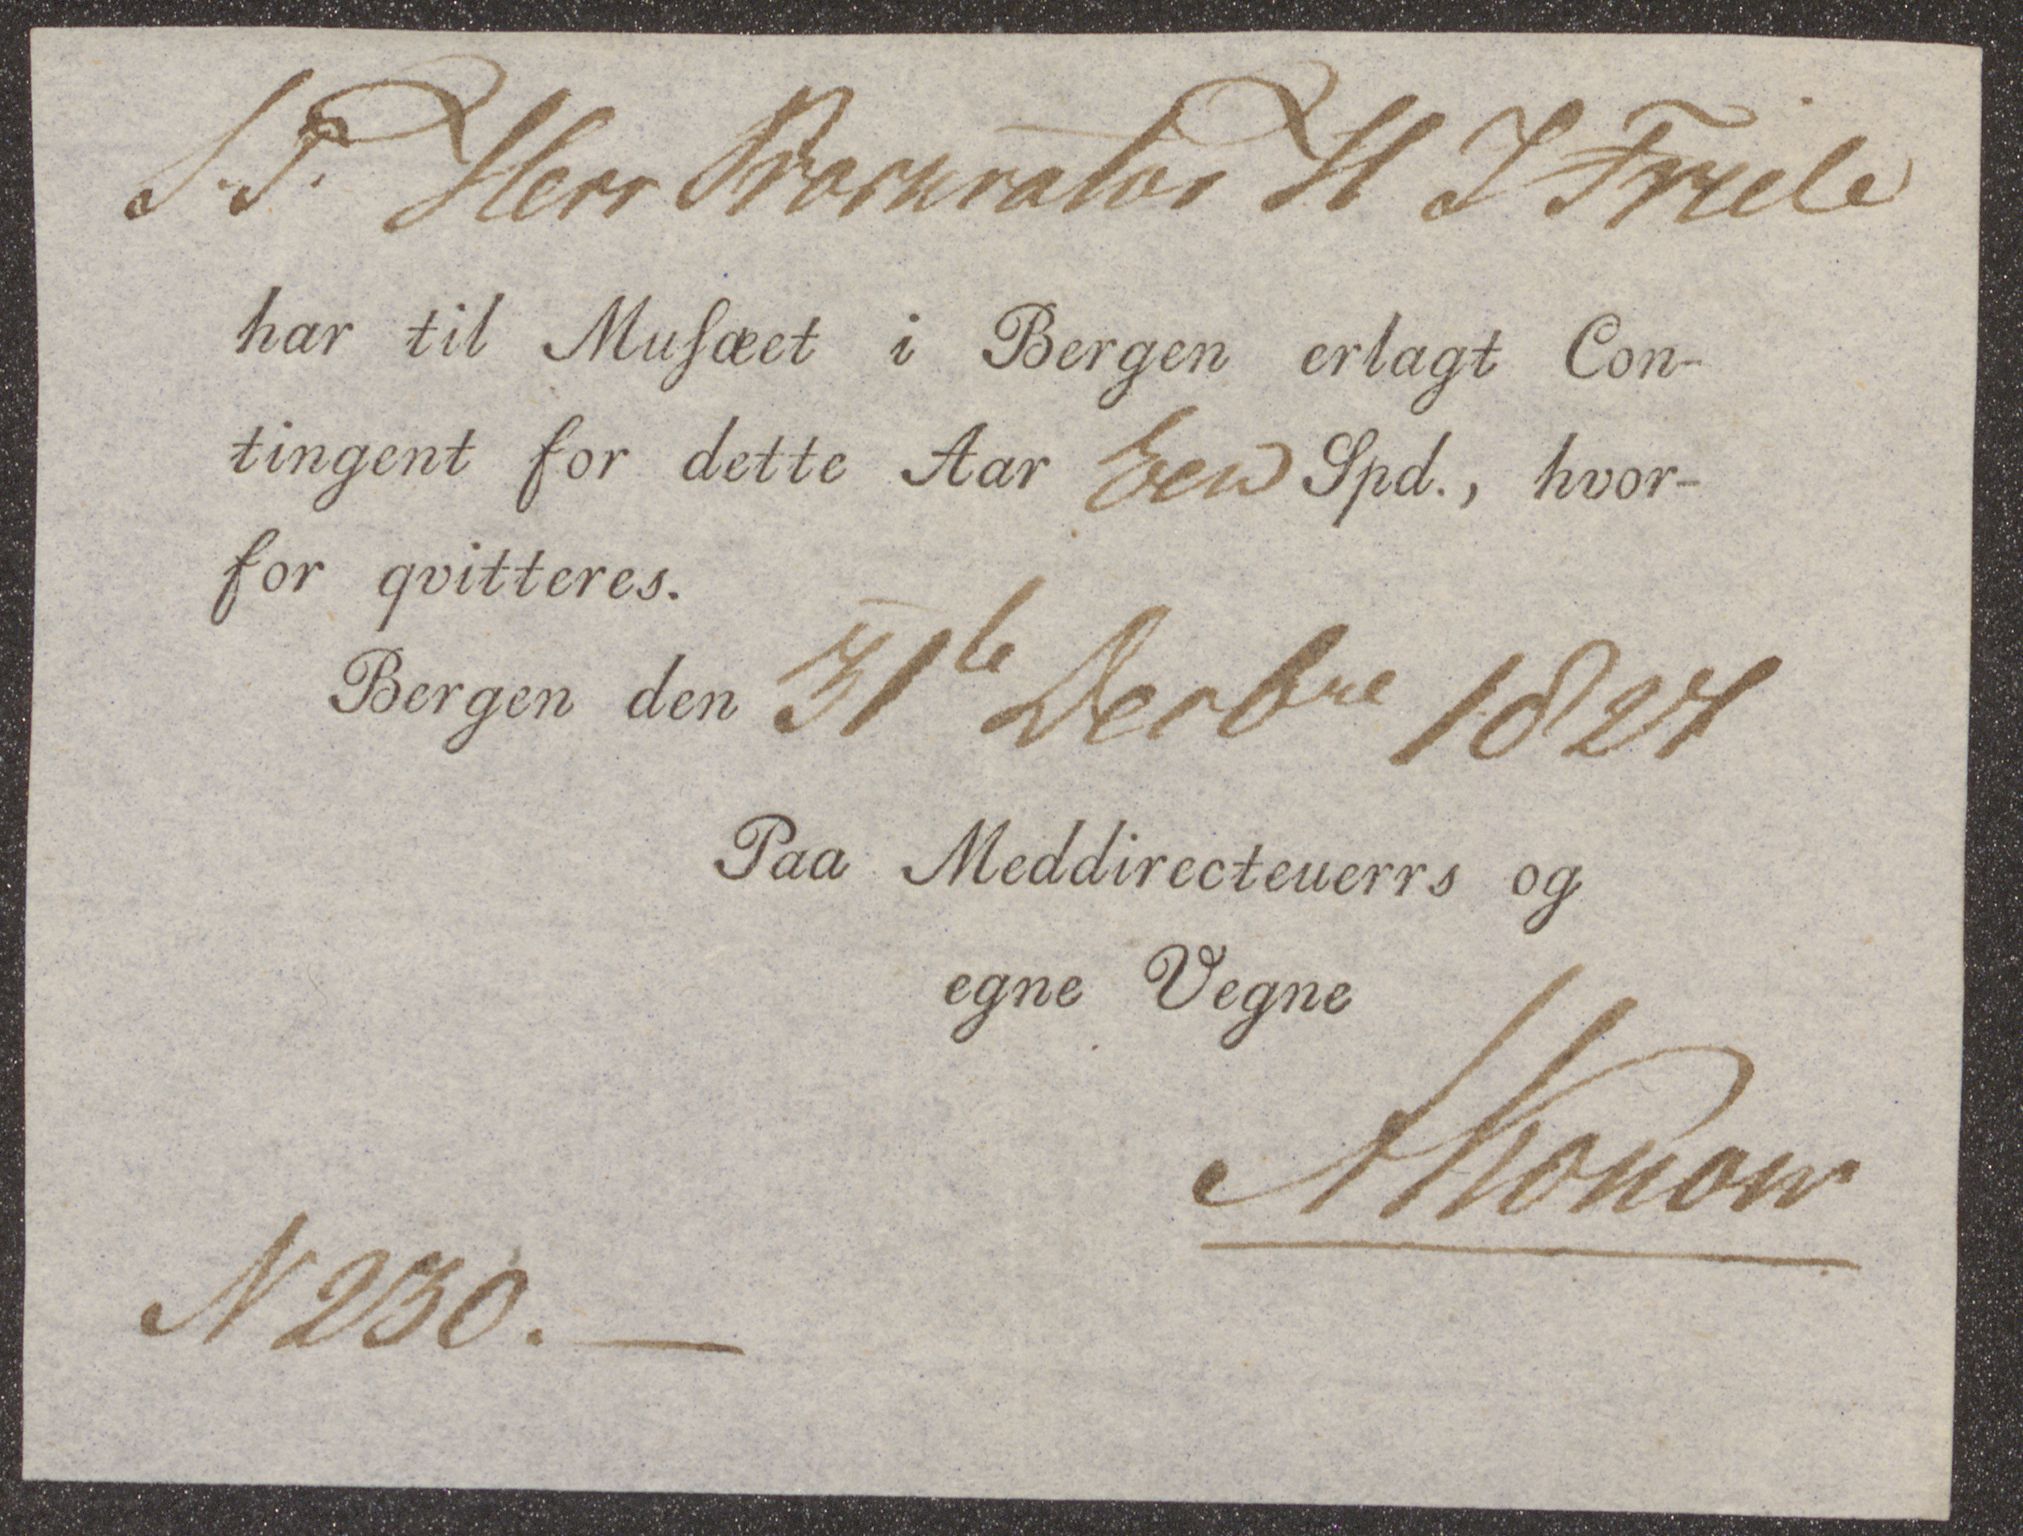 S. T. Herr Procurator H J Friele
har til Muſæet i Bergen erlagt Con-
tingent for dette Aar Een Spd., hvor-
for qvitteres.
Bergen den 31te Decbre 1827
Paa Meddirecteuerrs og
egne Vegne
AKonow
N 230.